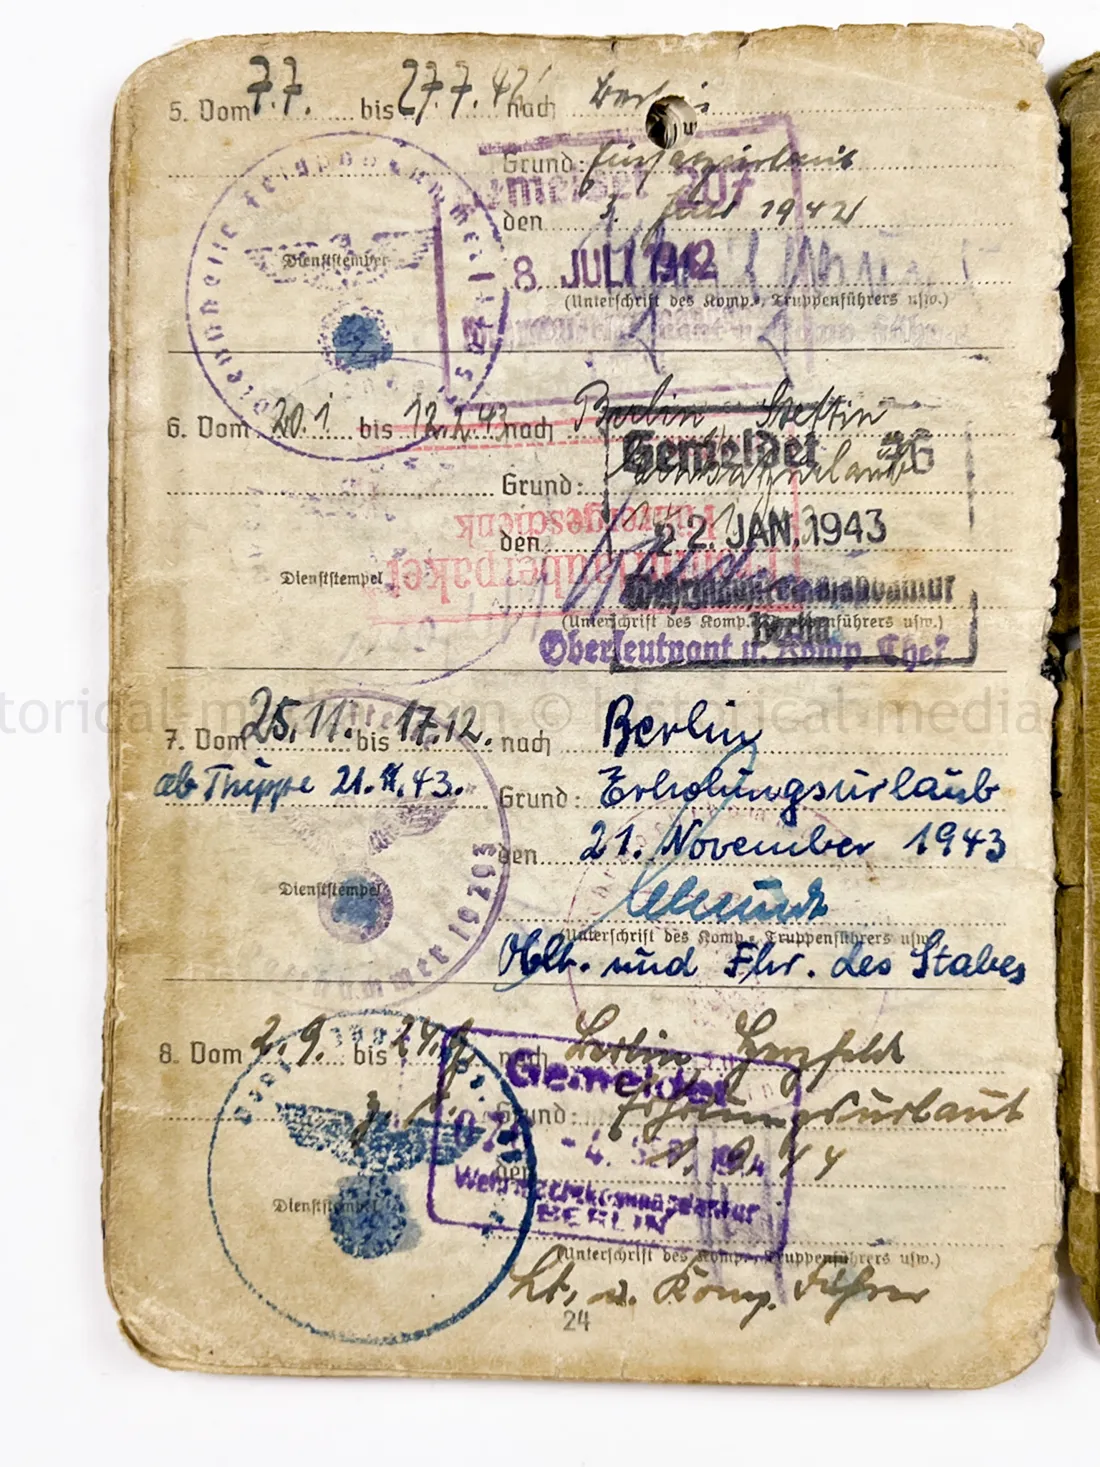 5. Vom 7.7. bis 27.7.42 nach Berlin
Grund:
Gemeldet 207
den 3. Juli 1942
8. JULI 1942
Dienststempel
(Unterschrift des Komp.-, Truppenführers usw.)
6. Vom 20.1 bis 12.2.43 nach Berlin Stettin
Gemeldet
Grund:
Führergeschenk
den 22. JAN. 1943
Fronturlauberpaket
Dienststempel
Wehrmachtkommandantur
(Unterschrift des Komp.-, Truppenführers usw.)
Berlin
Oberleutnant u. Komp. Chef
historical-media © historical-media
7. Vom 25.11. bis 17.12. nach Berlin
ab Truppe 21.11.43. Grund: Erholungsurlaub
den 21. November 1943
Dienststempel
nummer 19293
(Unterschrift des Komp.-, Truppenführers usw.)
Oblt. und Fhr. des Stabes
8. Vom 2.9. bis 24.9. nach Berlin
Gemeldet
Grund: Erholungsurlaub
- 4. SEP. 1944
den 1.9.44
Wehrmachtkommandantur
Dienststempel
BERLIN
(Unterschrift des Komp.-, Truppenführers usw.)
Lt. u. Komp. Führer
24